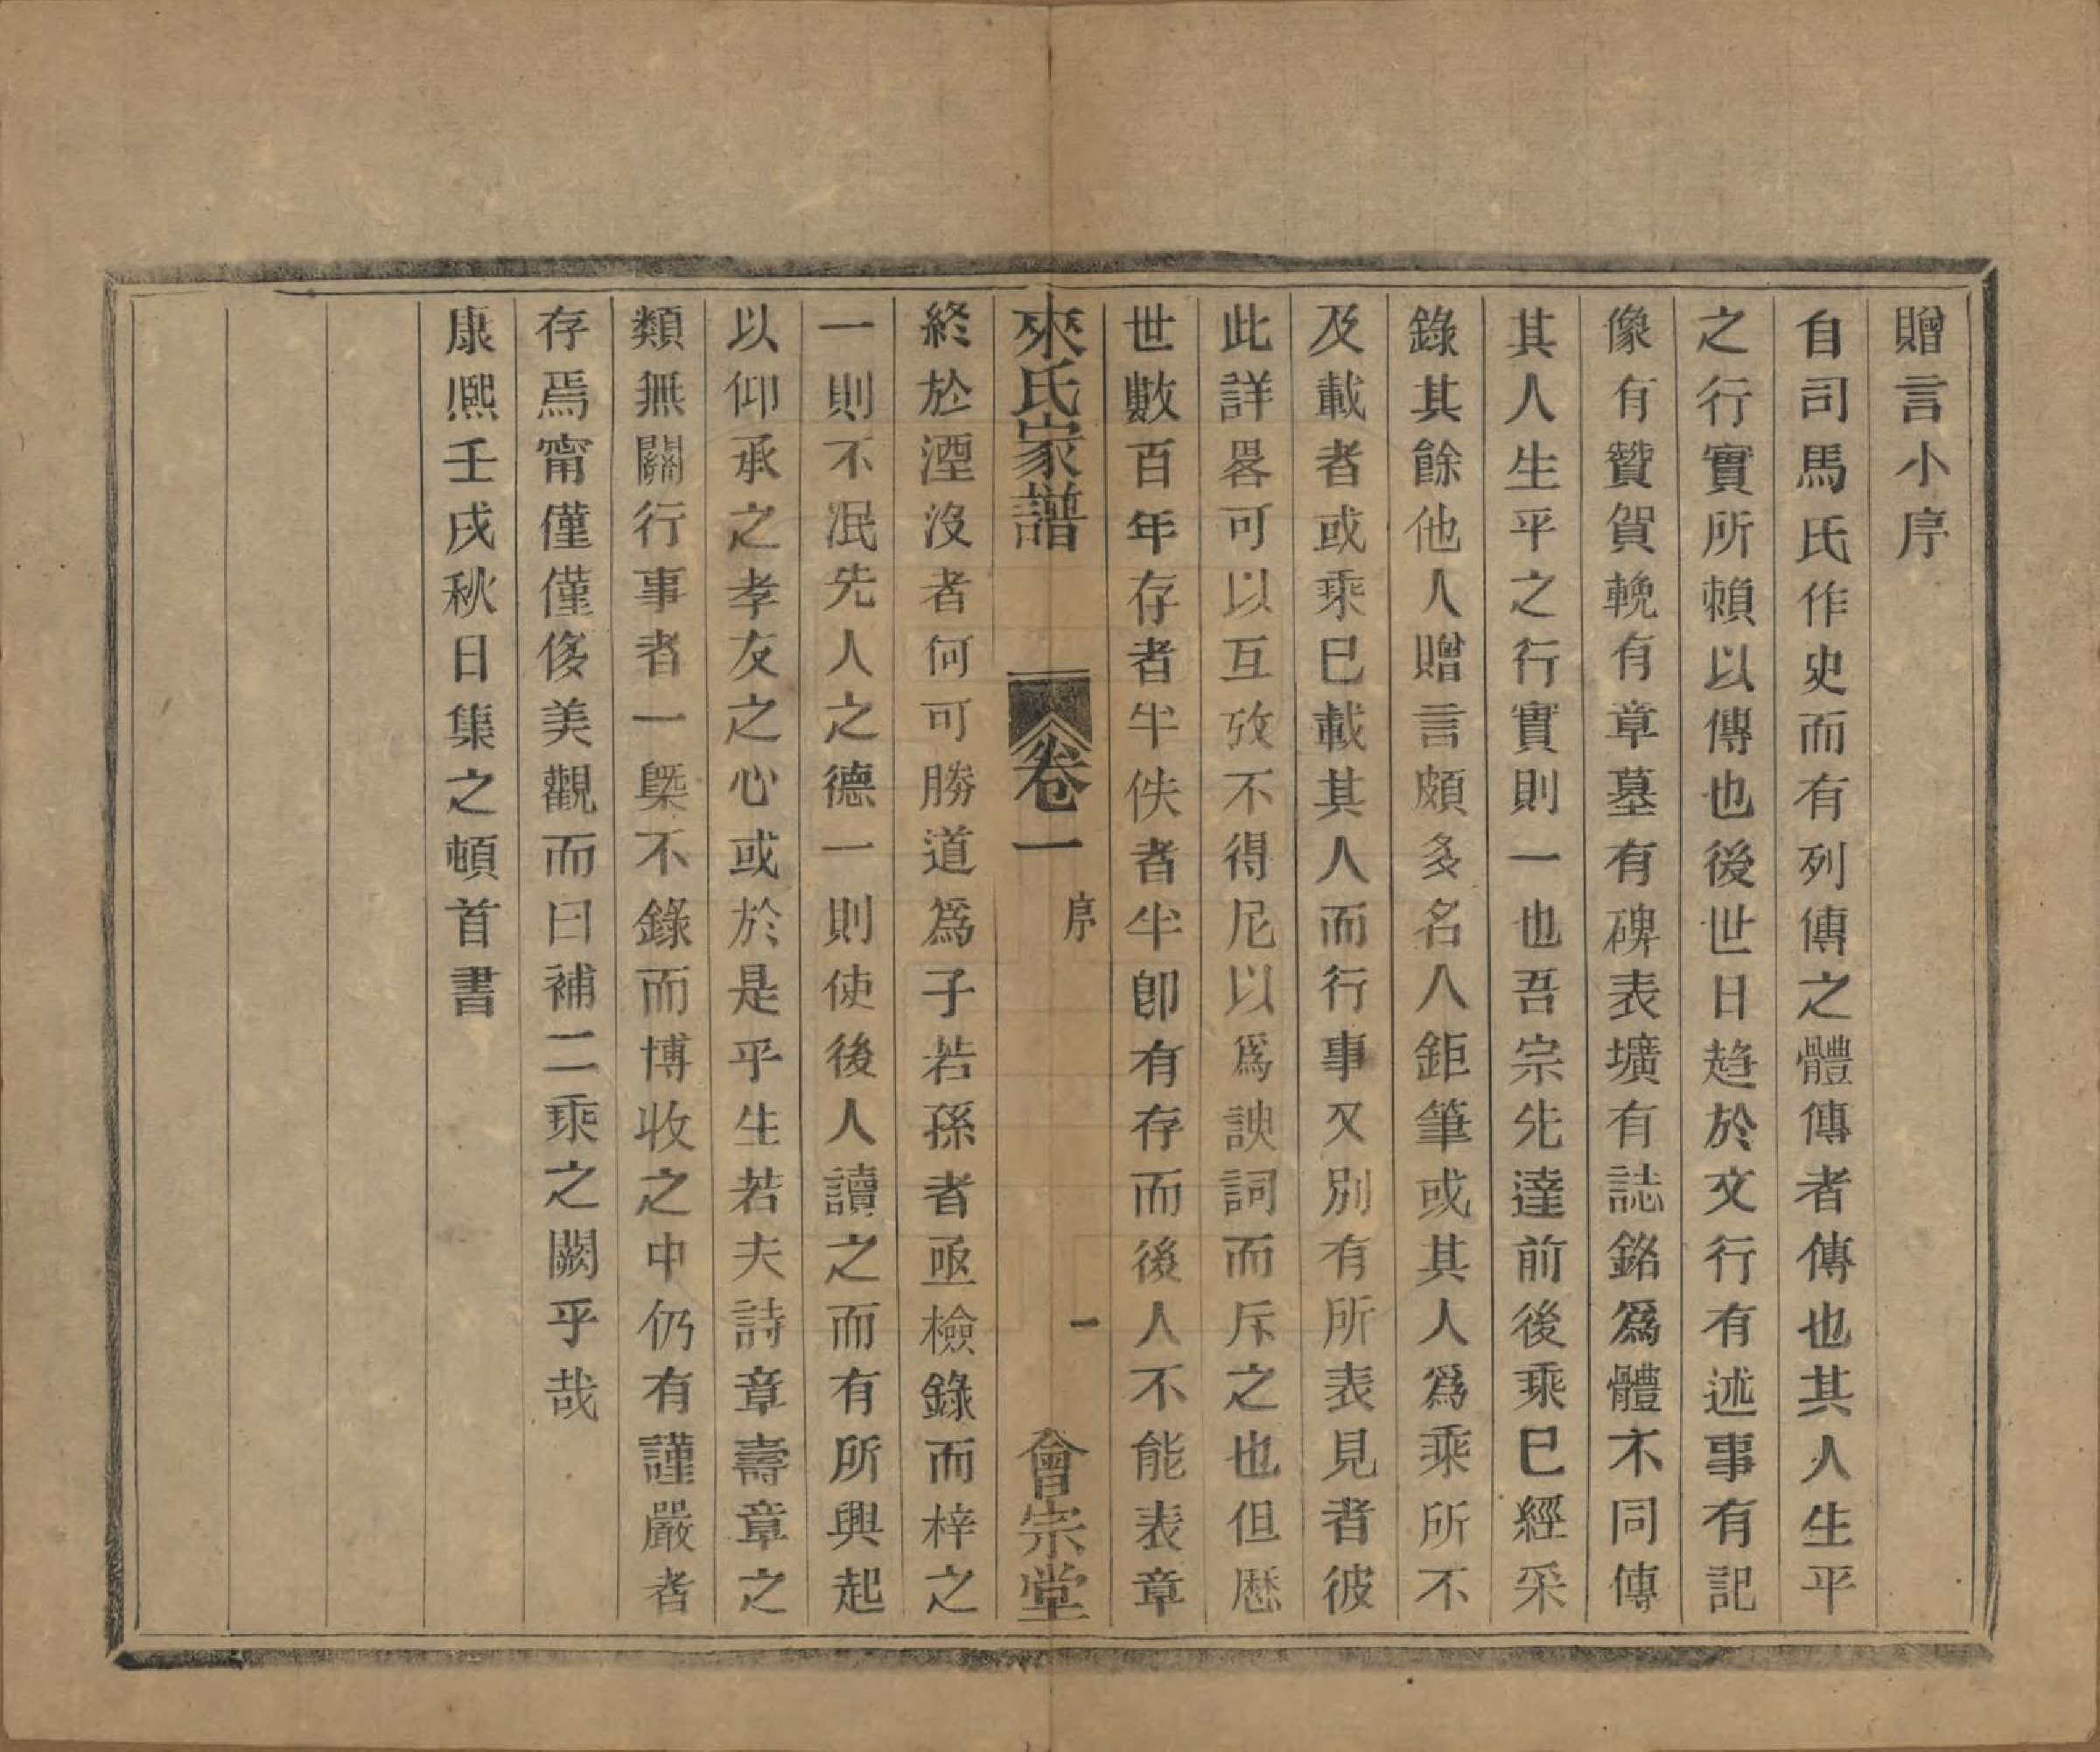 贈言小序
自司馬氏作史而有列傳之體傳者傳也其人生平
之行實所賴以傳也後世日趍於文行有述事有記
像有贊賀輓有章墓有碑表壙有誌銘爲體不同傳
其人生平之行實則一也吾宗先達前後乘巳經采
錄其餘他人贈言頗多名人鉅筆或其人爲乘所不
及載者或乘巳載其人而行事又別有所表見者彼
此詳畧可以互攷不得尼以爲諛詞而斥之也但歷
世數百年存者半佚者半卽有存而後人不能表章
來氏家譜 卷一 序 一 會宗堂
終於湮沒者何可勝道爲子若孫者亟檢錄而梓之
一則不泯先人之德一則使後人讀之而有所興起
以仰承之孝友之心或於是乎生若夫詩章壽章之
類無關行事者一槩不錄而博收之中仍有謹嚴者
存焉甯僅僅侈美觀而曰補二乘之闕乎哉
康熈壬戌秋日集之頓首書